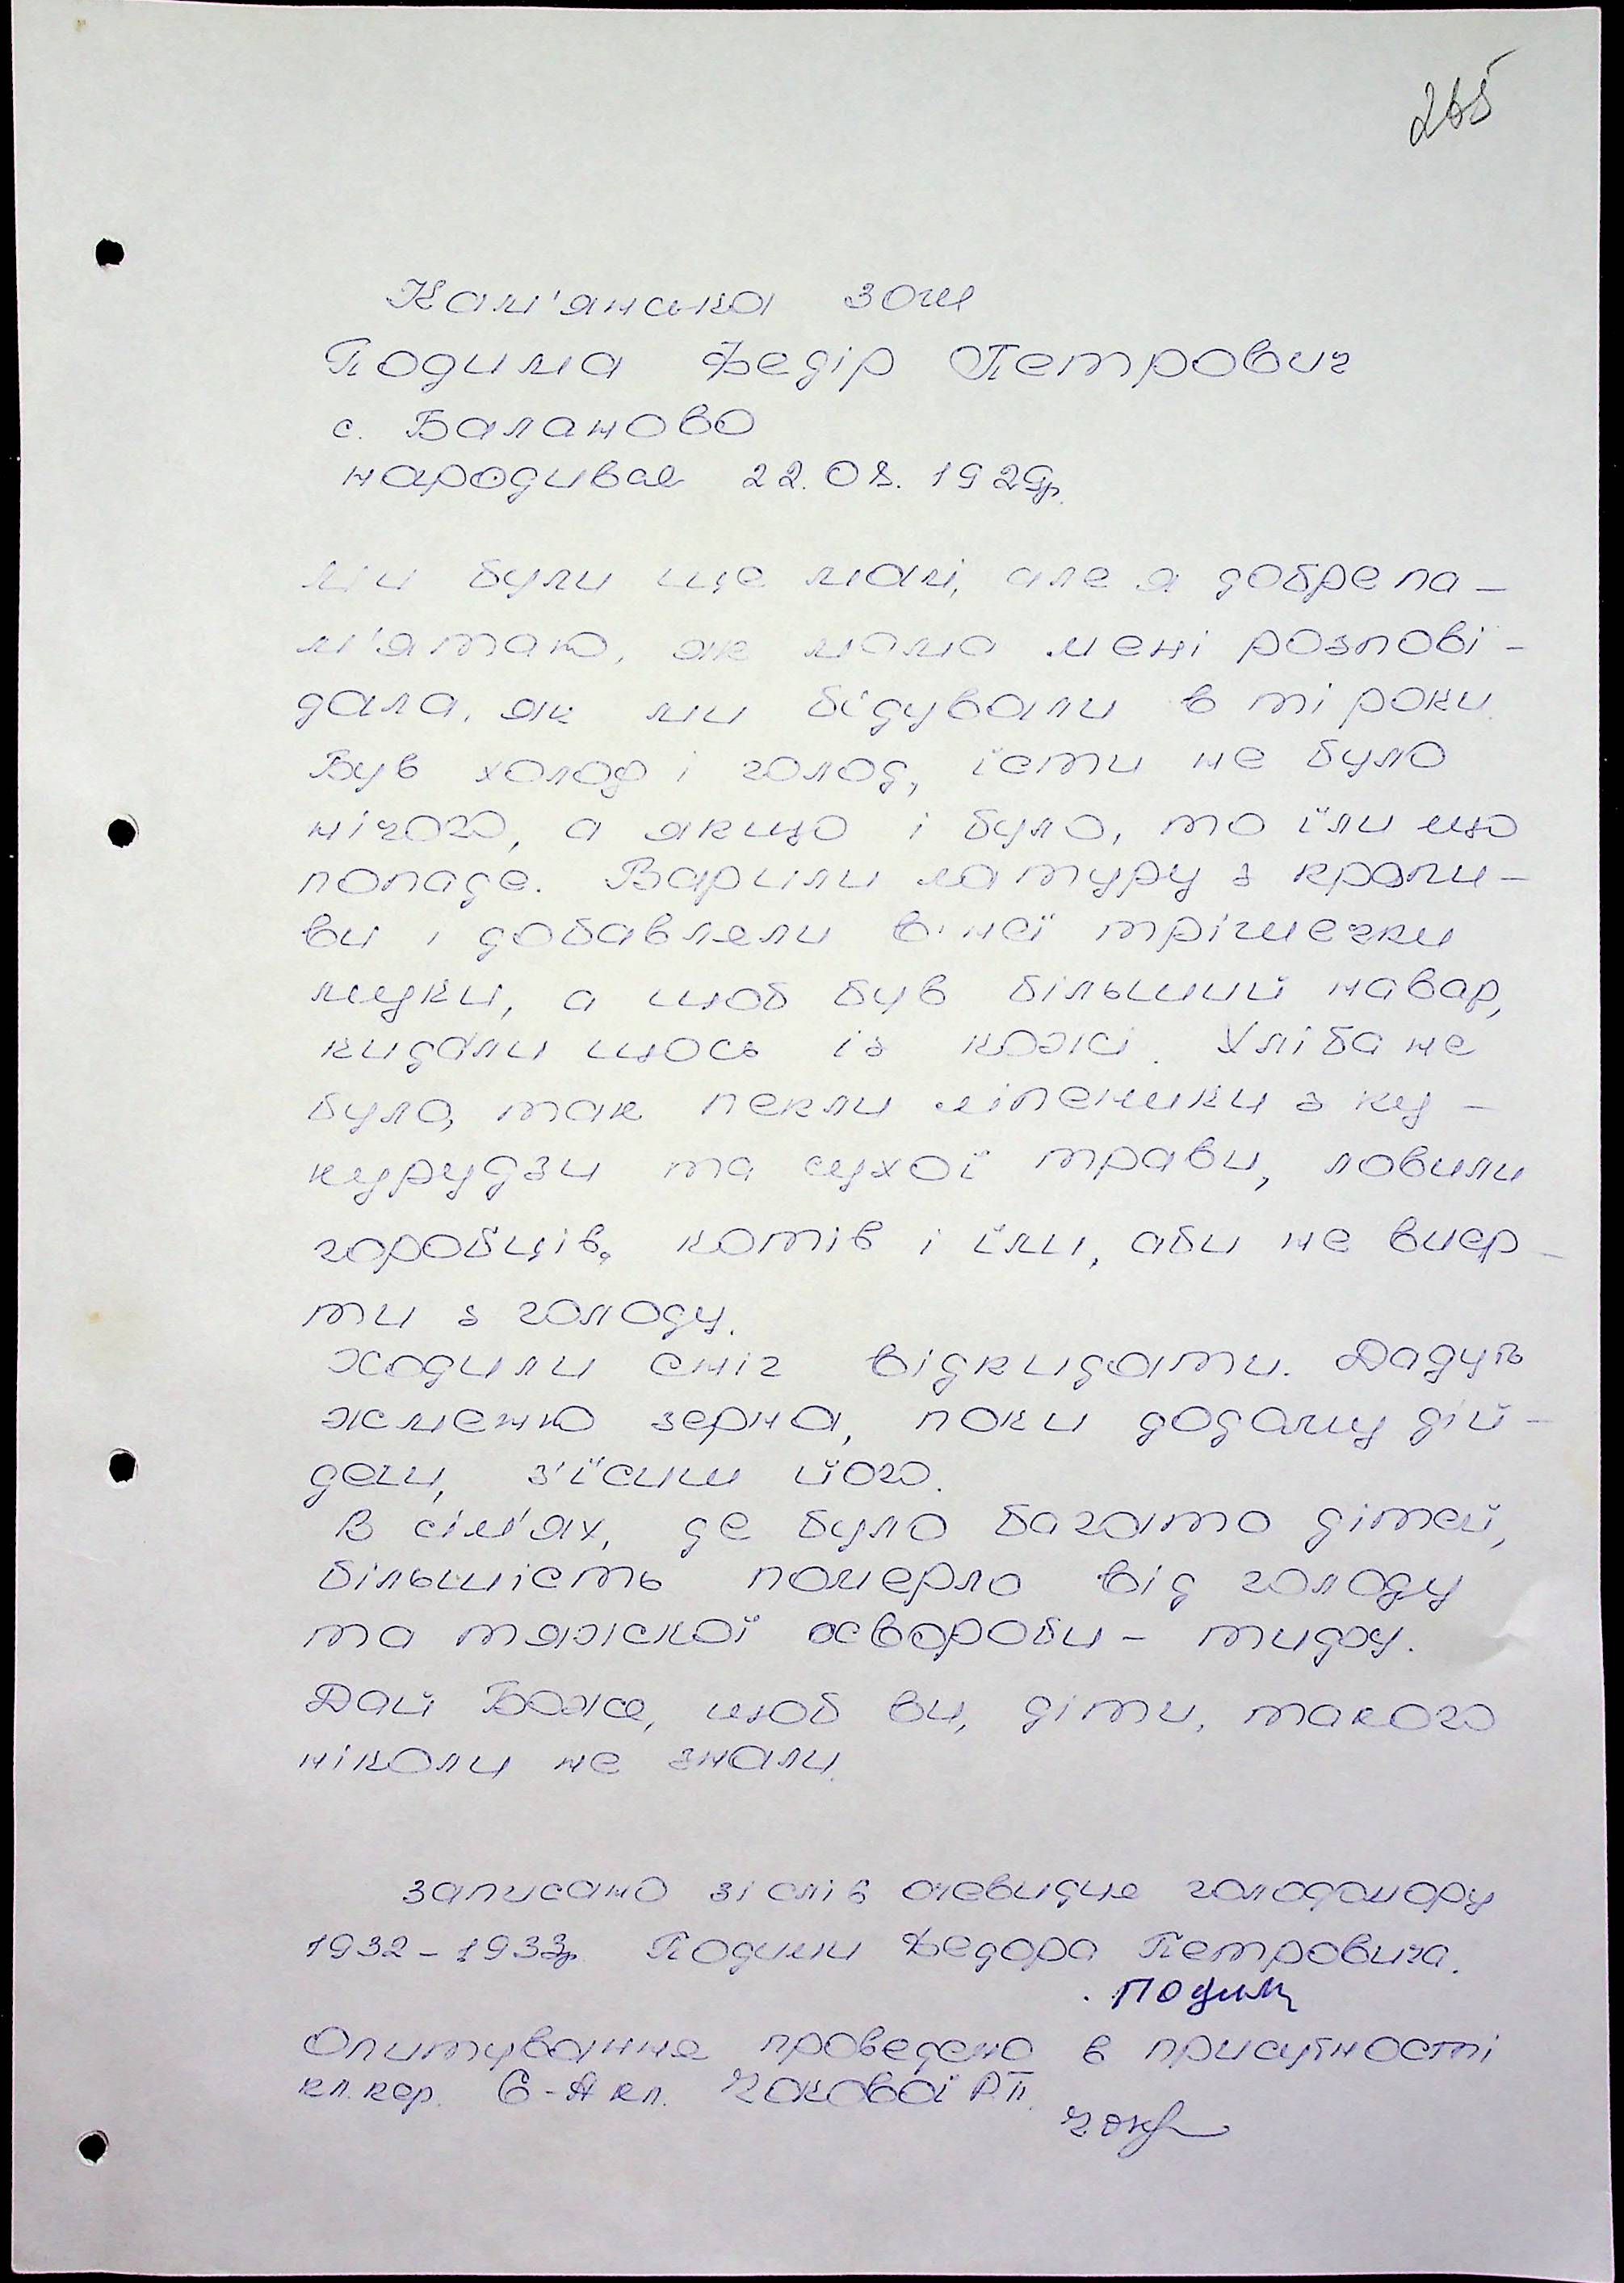 265
Кам'янська ЗОШ
Подима Федір Петрович
с. Баланово
народився 22.08.1929р.
Ми були ще малі, але я добре па-
м'ятаю, як мама мені розпові-
дала, як ми бідували в ті роки.
Був холод і голод, їсти не було
нічого, а якщо і було, то їли що
попаде. Варили затуру з кропи-
ви і добавляли в неї трішечки
муки, а щоб був більший навар,
кидали щось із кожі. Хліба не
було, так пекли ліпеники з ку-
курудзи та сухої трави, ловили
горобців, котів і їли, аби не вмер-
ти з голоду.
Ходили сніг відкидати. Дадуть
жменю зерна, поки додому дій-
деш, з'їсиш його.
В сім'ях, де було багато дітей,
більшість померло від голоду
та тяжкої хвороби - тифу.
Дай Боже, щоб ви, діти, такого
ніколи не знали.
Записано зі слів очевидця голодомору
1932-1933р. Подими Федора Петровича.
Подим
Опитування проведено в присутності
кл. кер. 6-А кл. Чокової Р.П.